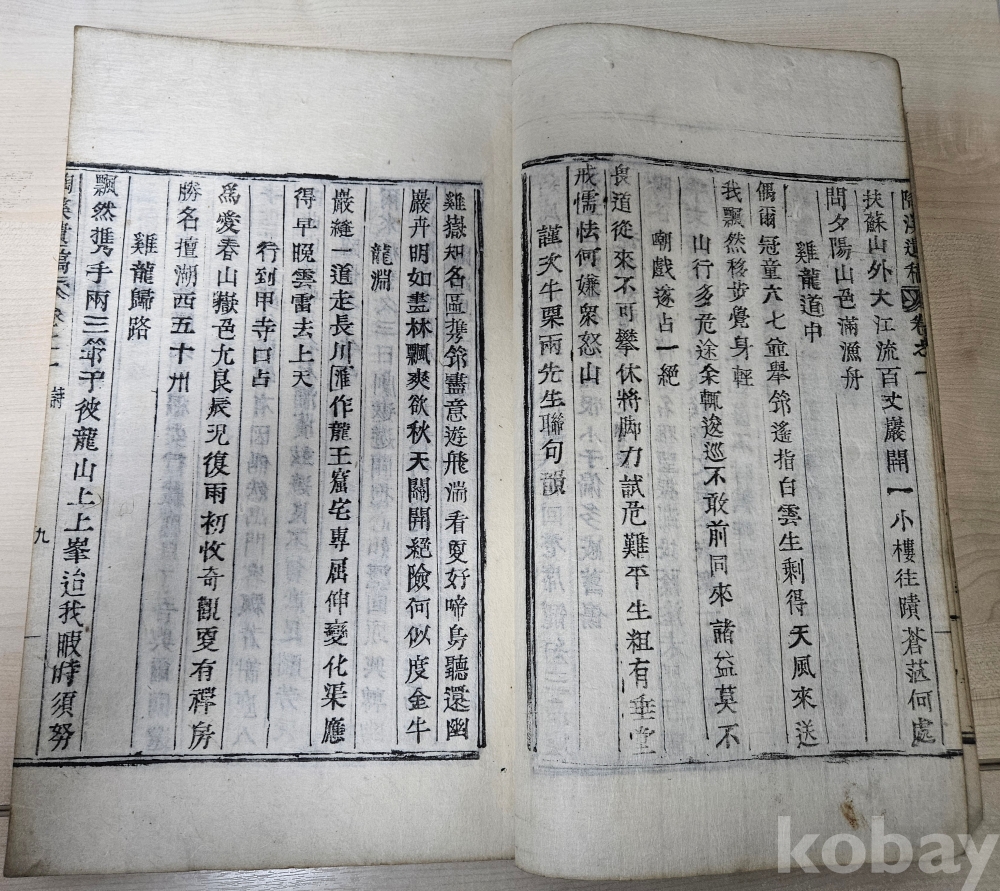 扶蘇山外大江流百丈巖開一小樓往蹟蒼茫何處
問夕陽山色滿漁舟
雞龍道中
偶爾冠童六七並舉笻遙指白雲生剩得天風來送
我飄然移步覺身輕
山行多危途余輒逡巡不敢前同來諸益莫不
嘲戲遂占一絶
畏道從來不可攀休將脚力試危難平生粗有垂堂
戒懦怯何嫌衆怒山
謹次牛栗兩先生聯句韻
雞嶽知名區携笻盡意遊飛湍看更好啼鳥聽還幽
巖卉明如畫林飄爽欲秋天關開絕險何似度金牛
龍淵
巖縫一道走長川匯作龍王窟宅專屈伸變化渠應
得早晚雲雷去上天
行到甲寺口占
爲愛春山嶽色尢良辰况復雨初收奇觀更有禪房
勝名擅湖西五十州
雞龍歸路
飄然携手兩三笻于彼龍山上上峯迨我暇時須努
遺稿 卷之一 詩
九
kobay